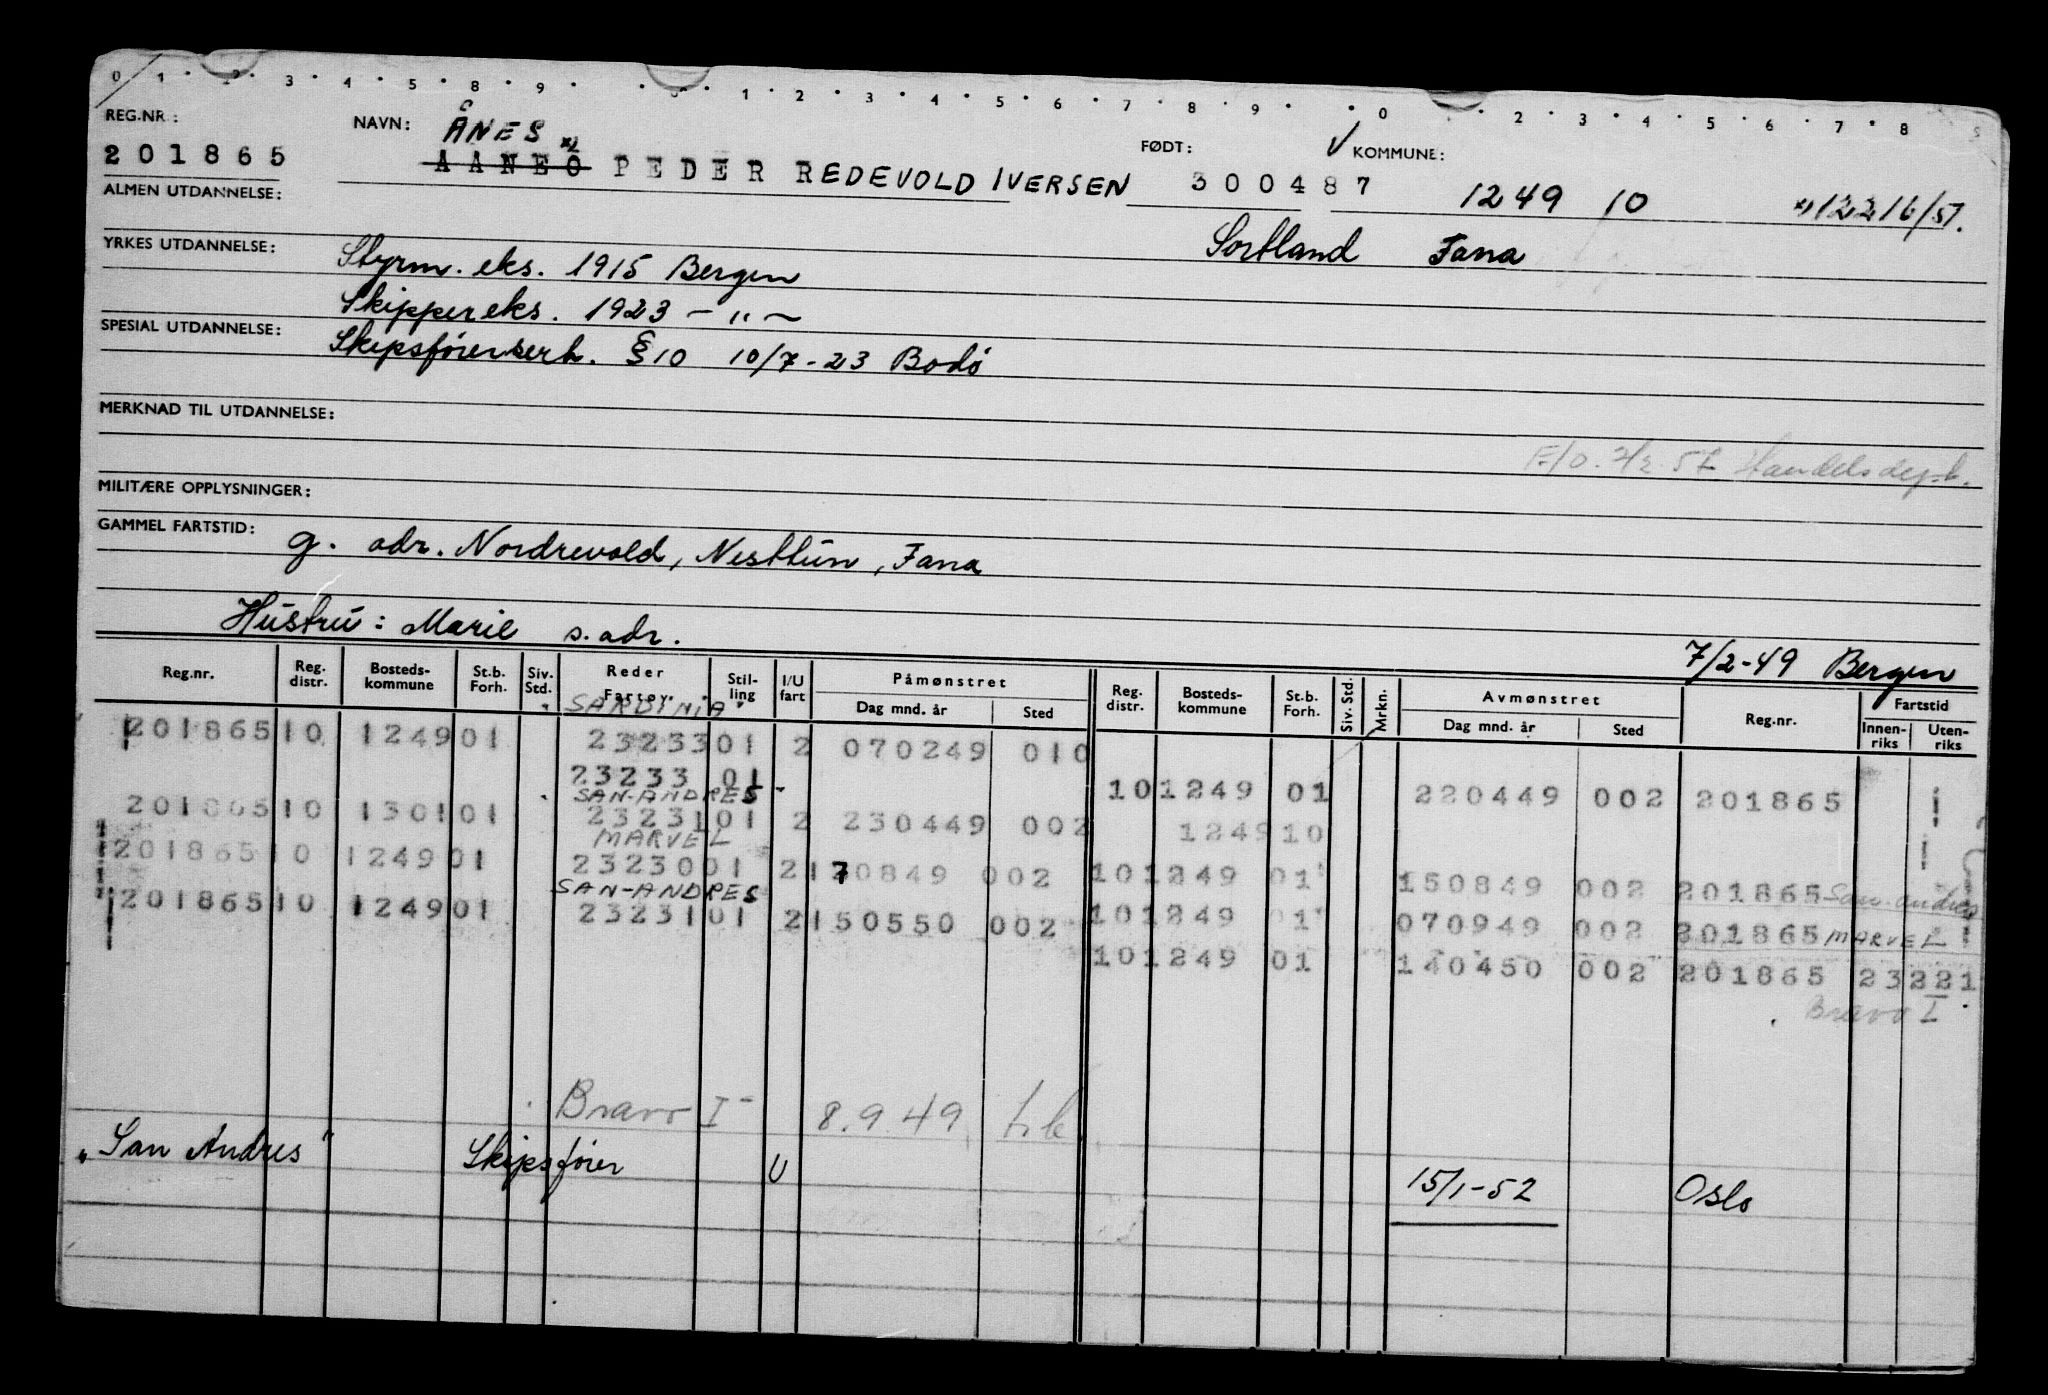 0 1 2 3 4 5 8 9 0 1 2 3 4 5 6 7 8 9 0 2 3 4 5 6 7 8 5
REG.NR.: NAVN: ÅNES FØDT: √ KOMMUNE:
201865 AANEO x) PEDER REDEVOLD IVERSEN 300487 1249 10 x) 12216/51.
ALMEN UTDANNELSE:
Sortland Fana
YRKES UTDANNELSE: Styrm. eks. 1915 Bergen
Skippereks. 1923 — " —
SPESIAL UTDANNELSE: Skipsförerserh. § 10 10/7-23 Bodö
MERKNAD TIL UTDANNELSE:
F/O. 2/2.52 Handelsdept.
MILITÆRE OPPLYSNINGER:
GAMMEL FARTSTID: g. adr. Nordrevold, Nesttun, Fana
Hustru: Marie s. adr.
7/2-49 Bergen
Reg.nr. Reg. distr. Bosteds-kommune St.b. Forh. Siv. Std. Reder Fartøy. Stil-ling I/U fart Påmønstret Dag mnd. år Sted Reg. distr. Bosteds-kommune St.b. Forh. Siv. Std. Mrkn. Avmønstret Dag mnd. år Sted Reg.nr. Fartstid Innen-riks Uten-riks
"SARDINIA"
201865 10 1249 01 23233 01 2 070249 010
23233 01 10 1249 01 220449 002 201865
"SAN-ANDRES"
201865 10 1301 01 23231 01 2 230449 002 1249 10
MARVEL
201865 10 1249 01 23230 01 2 170849 002 10 1249 01 150849 002 201865 San-Andres
SAN-ANDRES
201865 10 1249 01 23231 01 2 150550 002 10 1249 01 070949 002 201865 MARVEL
10 1249 01 140450 002 201865 23221
Bravo I
Bravo I 8.9.49
"San Andres" Skipsförer U 15/1-52 Oslo